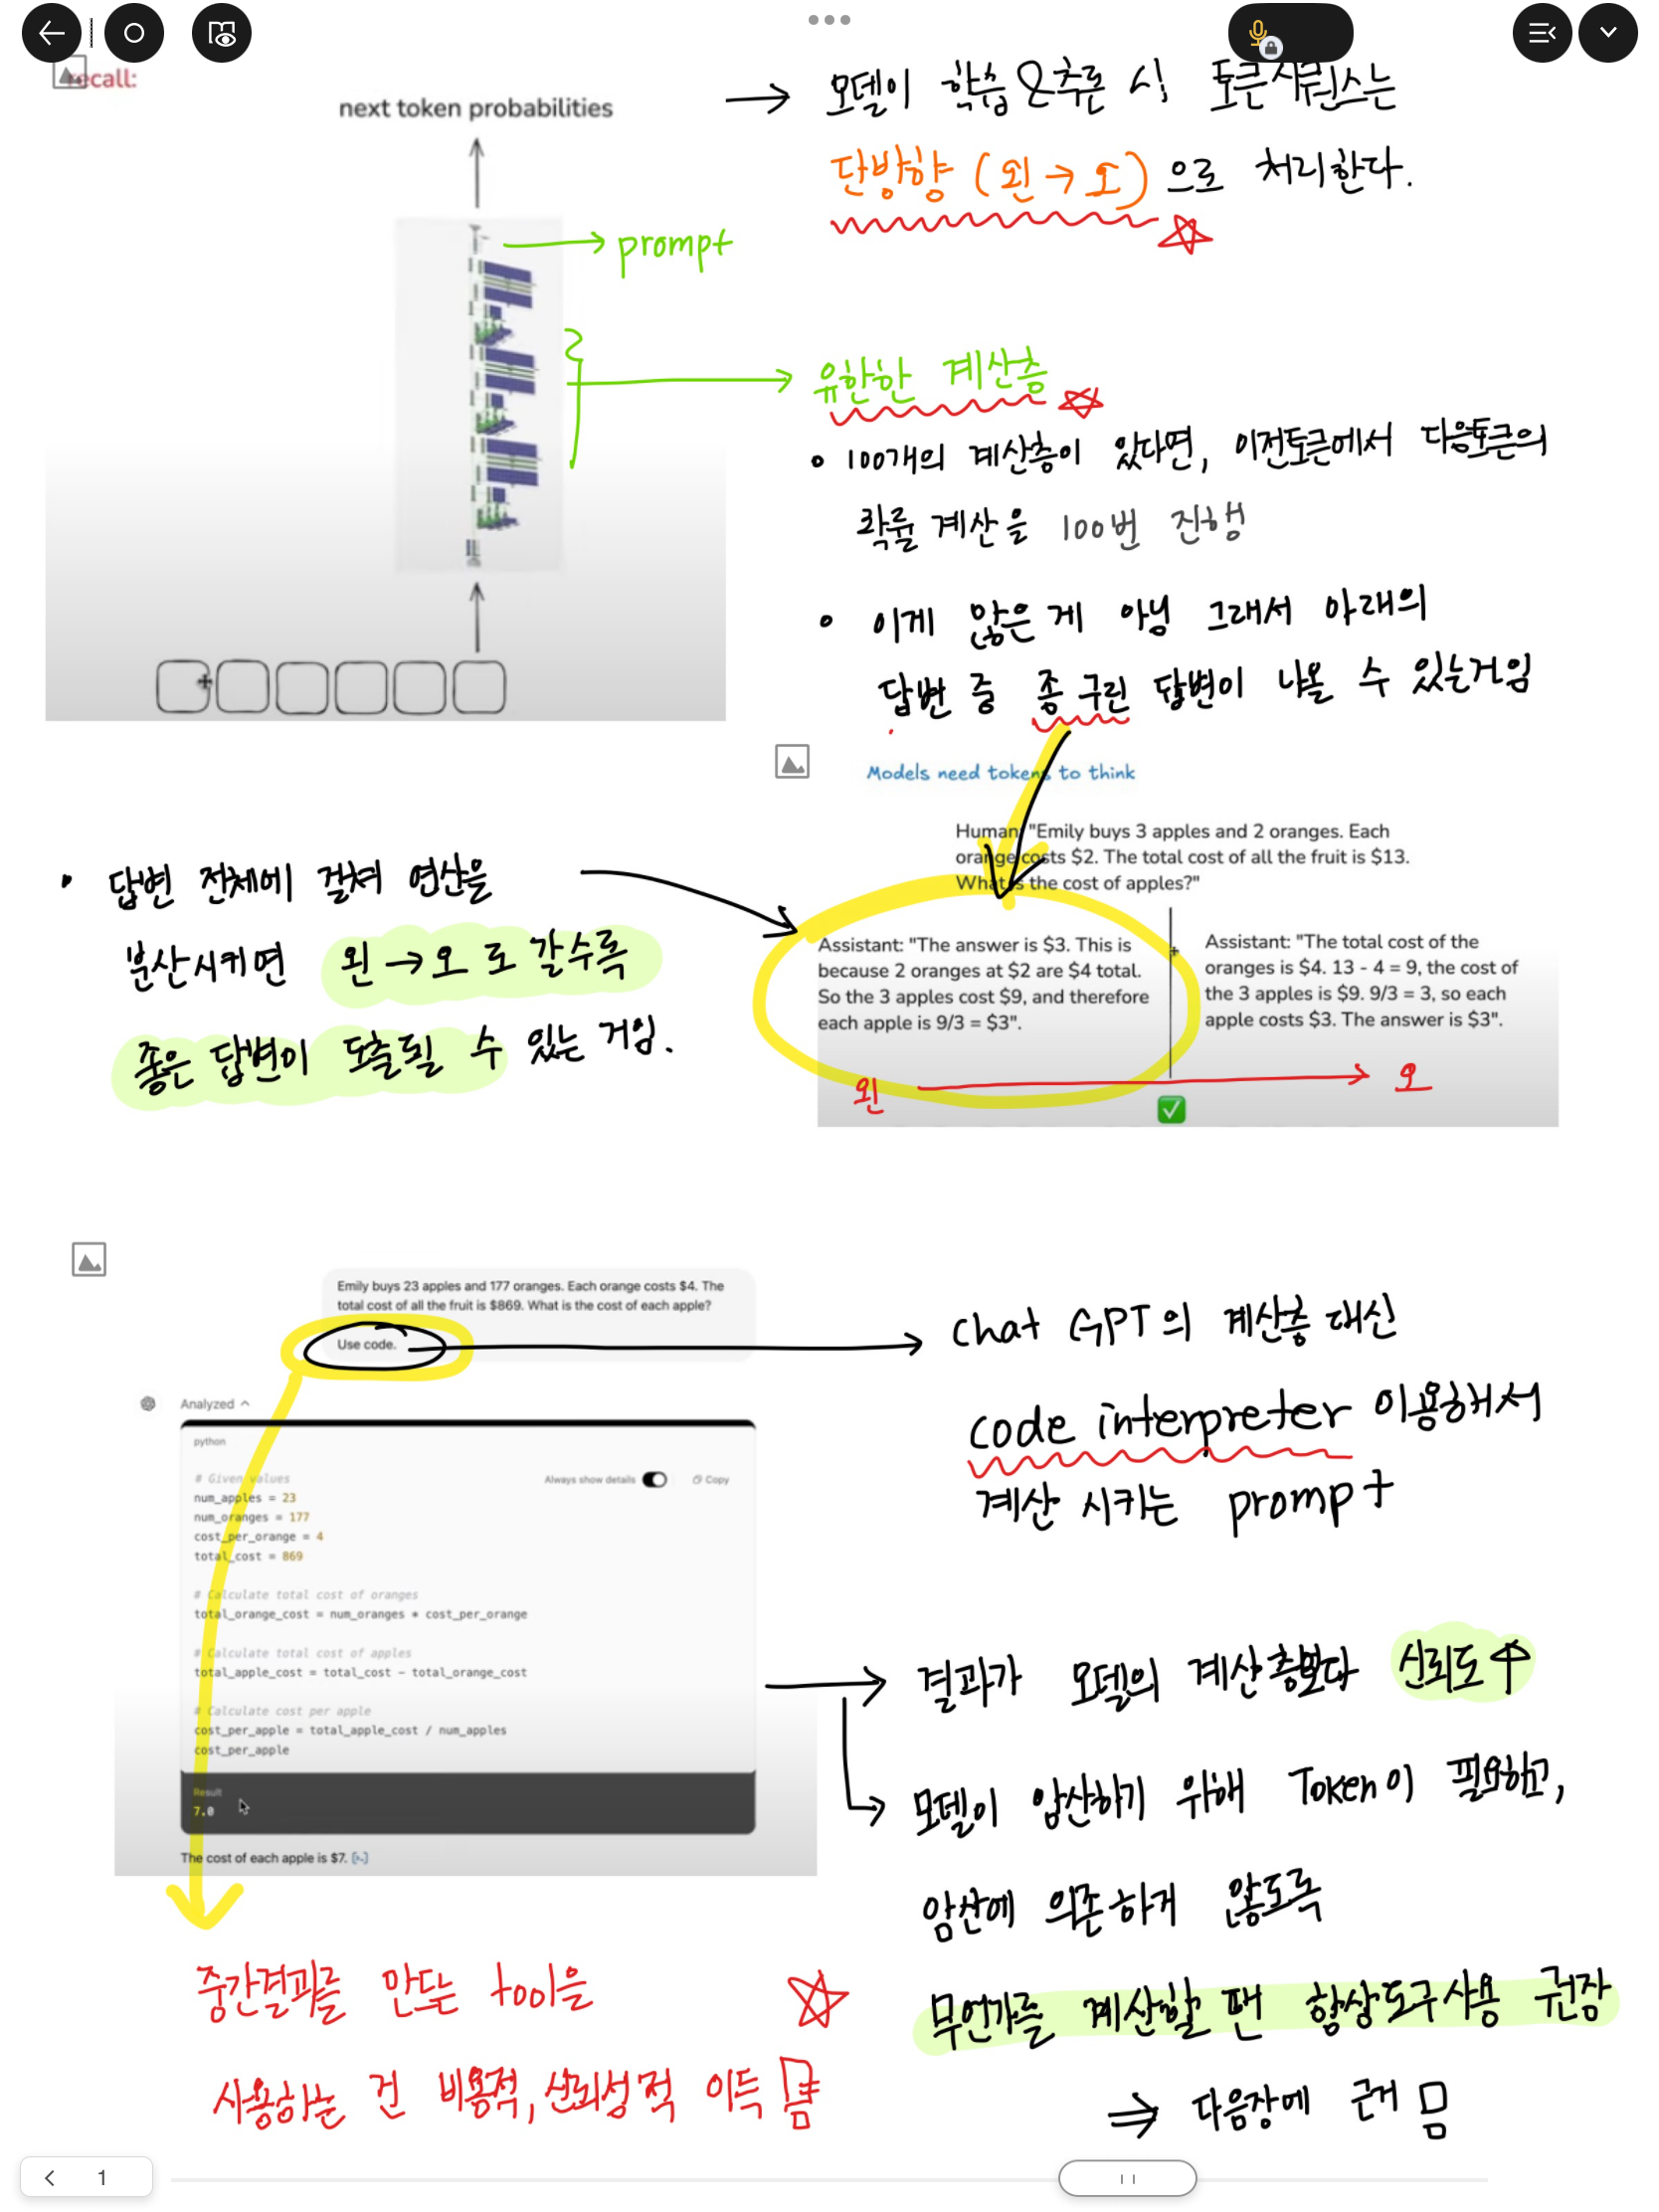 recall:
next token probabilities
→ 모델이 학습 & 추론 시 토큰 시퀀스는
단방향 (왼 → 오) 으로 처리한다.
prompt
유한한 계산층
• 100개의 계산층이 있다면, 이전토큰에서 다음토큰의
확률 계산을 100번 진행
• 이게 많은 게 아님 그래서 아래의
답변 중 좀 구린 답변이 나올 수 있는거임
Models need tokens to think
Human: "Emily buys 3 apples and 2 oranges. Each
orange costs $2. The total cost of all the fruit is $13.
What is the cost of apples?"
• 답변 전체에 걸쳐 연산을
분산시키면 왼 → 오 로 갈수록
좋은 답변이 도출될 수 있는 거임.
Assistant: "The answer is $3. This is
because 2 oranges at $2 are $4 total.
So the 3 apples cost $9, and therefore
each apple is 9/3 = $3".
Assistant: "The total cost of the
oranges is $4. 13 - 4 = 9, the cost of
the 3 apples is $9. 9/3 = 3, so each
apple costs $3. The answer is $3".
왼 → 오
Emily buys 23 apples and 177 oranges. Each orange costs $4. The
total cost of all the fruit is $869. What is the cost of each apple?
Use code.
chat GPT의 계산층 대신
code interpreter 이용해서
계산 시키는 prompt
Analyzed
python
Always show details
Copy
# Given values
num_apples = 23
num_oranges = 177
cost_per_orange = 4
total_cost = 869
# Calculate total cost of oranges
total_orange_cost = num_oranges * cost_per_orange
# Calculate total cost of apples
total_apple_cost = total_cost - total_orange_cost
# Calculate cost per apple
cost_per_apple = total_apple_cost / num_apples
cost_per_apple
Result
7.0
The cost of each apple is $7. [>-]
→ 결과가 모델의 계산층보다 신뢰도 ↑
→ 모델이 암산하기 위해 Token이 필요하고,
암산에 의존하게 않도록
무언가를 계산할 땐 항상 도구 사용 권장
⇒ 다음장에 근거
중간결과를 만드는 tool을
사용하는 건 비용적, 신뢰성적 이득
1